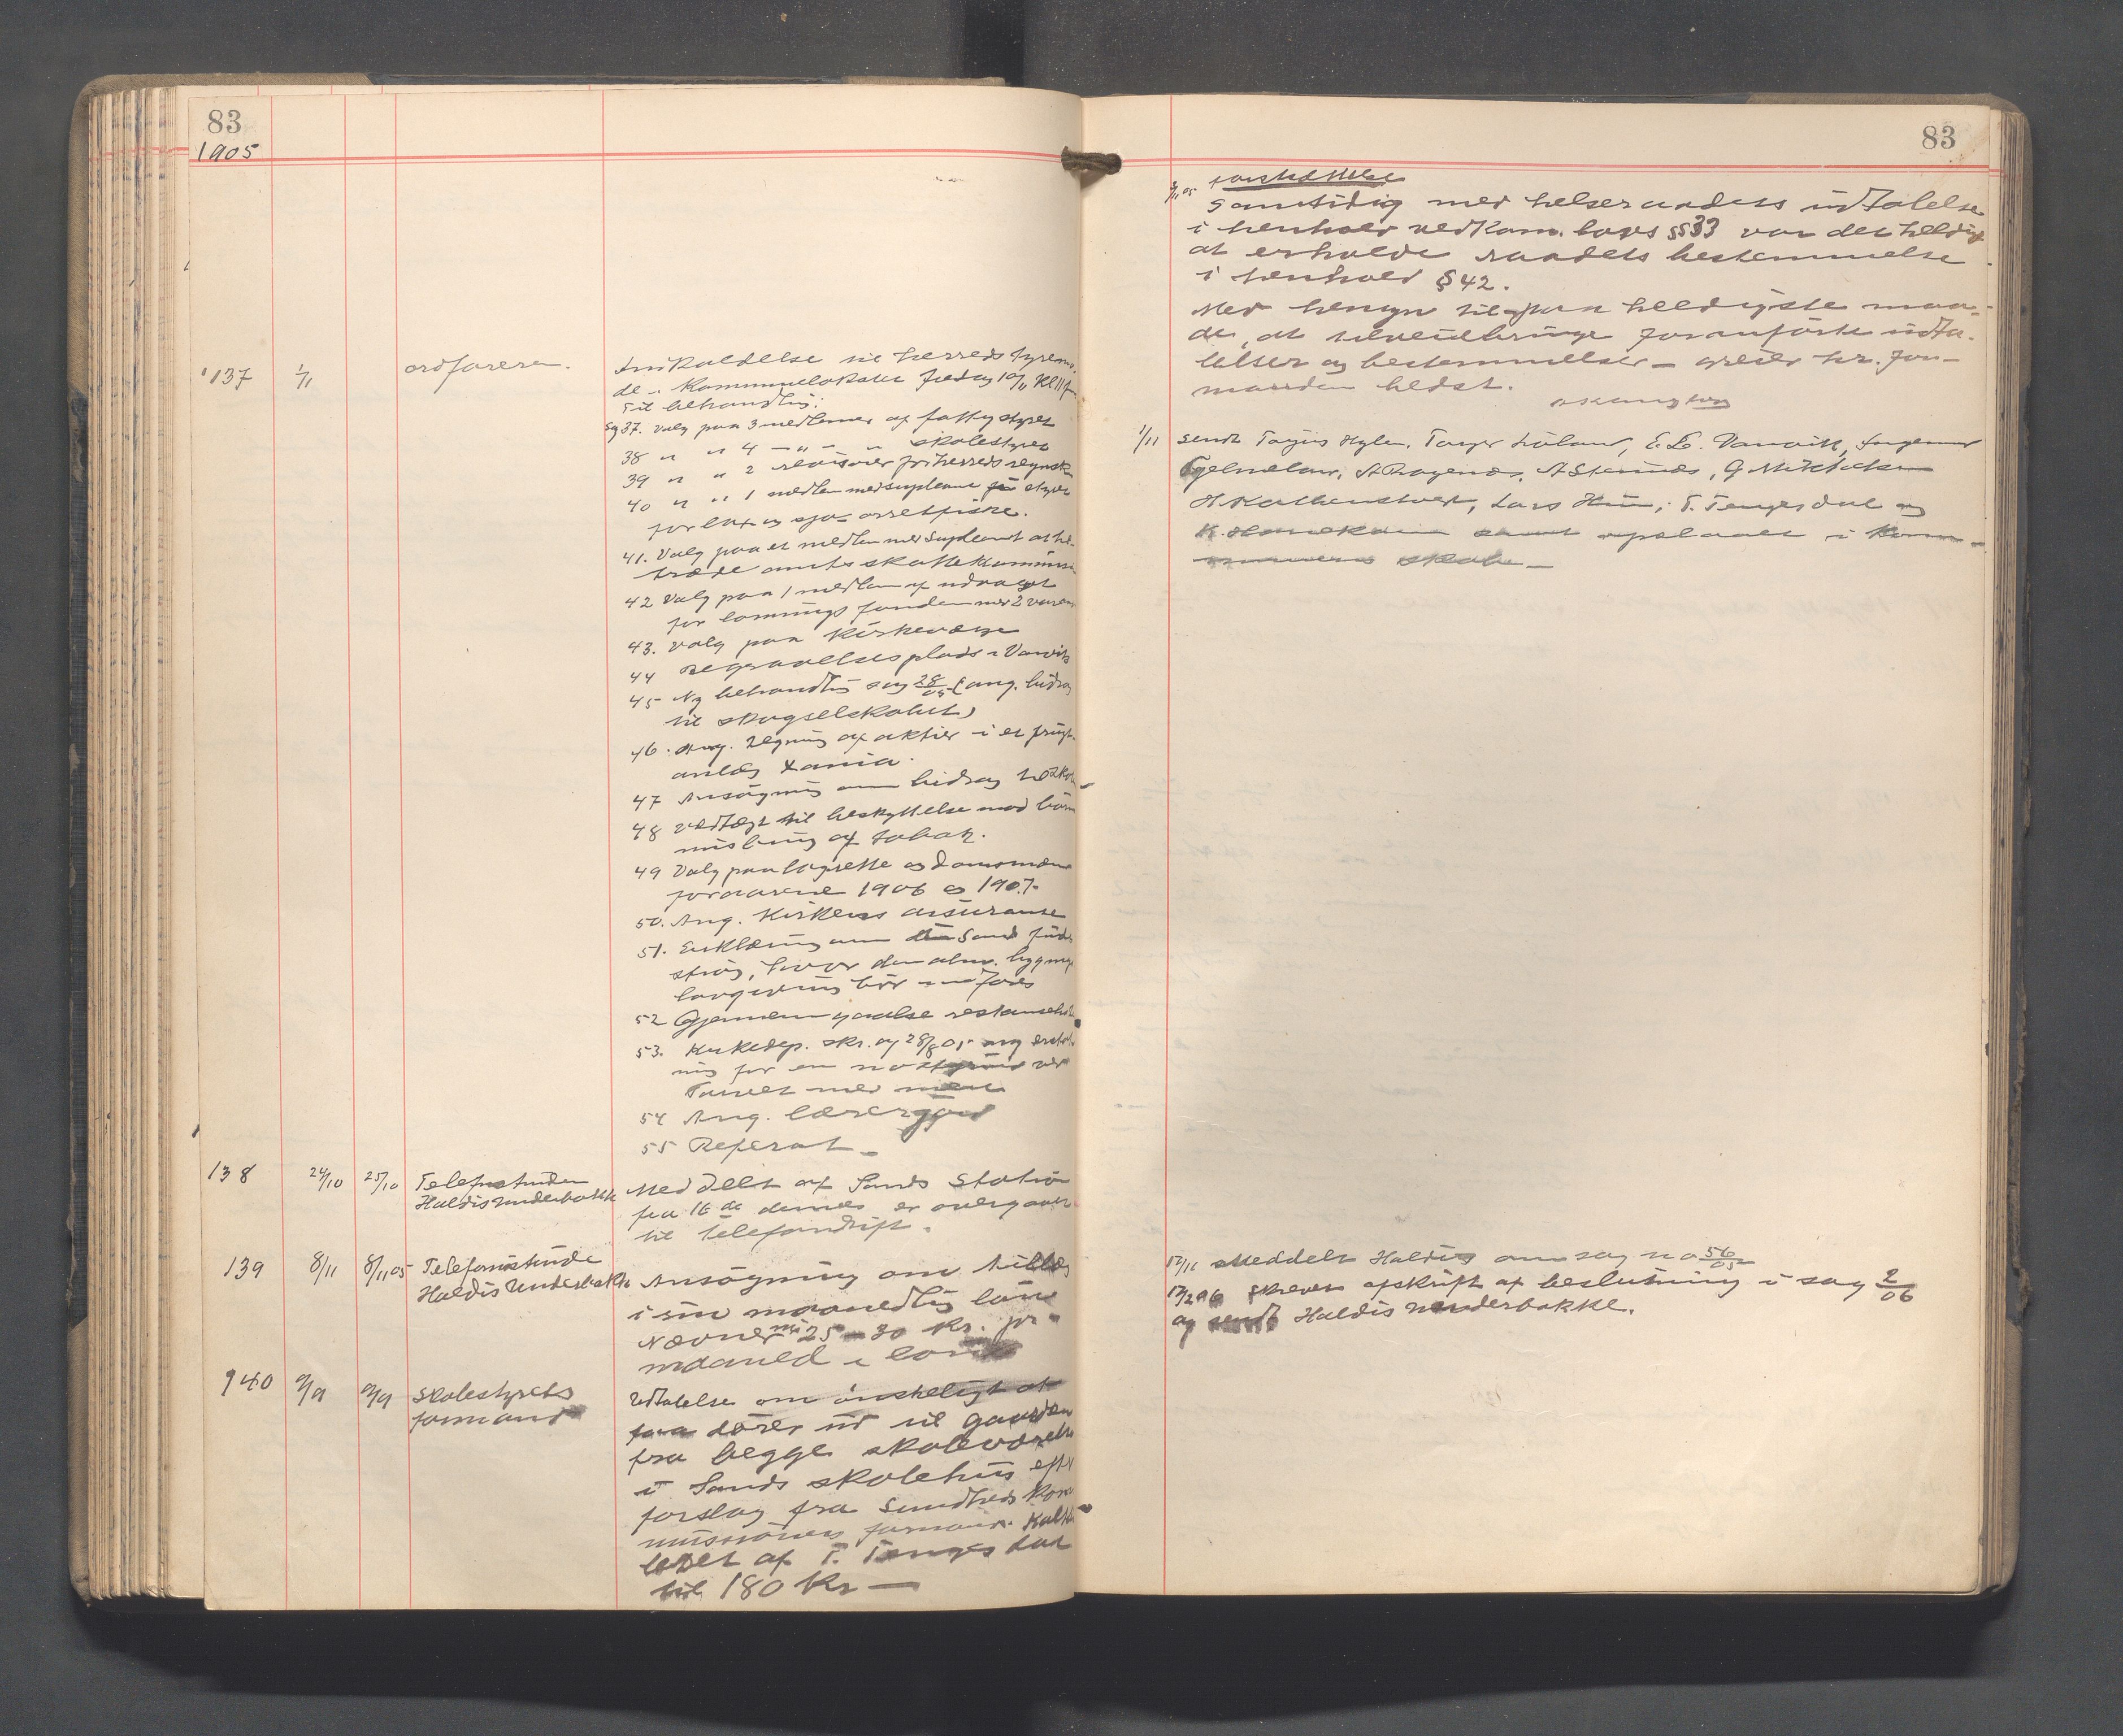 83
1905
137 1/11 ordføreren. Indkaldelse til herredsstyremø-
de i Kommunelokalet fredag 10/11 Kl 11 fm
til behandling:
Sg 37. Valg paa 3 medlemer af fattigstyret
38 " " 4 — " — " skolestyret
39 " " 2 revisorer for herredsregnsk
40 " " 1 medlem med supleant styret
for lax og sjø-ørretfiske.
41. Valg paa et medlem med Supleant at til-
træde amtsskattekommiss
42 Valg paa 1 medlem af udvalget
for lønningsfonden med 2 varam
43. Valg paa Kirkeværge
44 Begravelsesplads i Vanvik
45 Ny behandling sag 28/05 (ang. bidrag
til skogselskabet)
46. Ang. tegning af aktier i et
anlæg
47 Ansøgning om bidrag
48 Vedtægt til beskyttelse mod børns
misbrug af tobak.
49 Valg paa lagrette og domsmænd
for aarene 1906 og 1907.
50. Ang. Kirkens assuranse
51. Erklæring om Sand
strøg, hvor den alm. bygnings
lovgivning bør indføres
52 Gjennemgaaelse restanseliste
53. Kirkedep. skr. af 28/8 05 ang erstat-
ning for en ved
54 Ang. lærerjord
55 Referat —
138 24/10 25/10 Telefonistinden
Haldis Underbakke Meddelt at Sands Station
fra 16de dennes er overgaaet
til Telefondrift.
139 8/11 8/11 05 Telefonistinde
Haldis Underbakke Ansøgning om tillæg
i sin maanedlig løn
Nævner 25 - 30 kr. pr
maaned i løn
140 9/9 9/9 Skolestyrets
formand Udtalelse om ønskeligt at
faa dører ud til gaarden
fra begge skoleværelser
i Sands skolehus efter
forslag fra Sundheds kom
missionens formand. Kalku
leret af T. Tengesdal
til 180 kr —
83
fortsættelse
samtidig med helseraadets udtalelse
i henhold vedkom. lovs §§33 var det heldig
at erholde raadets bestemmelse
i henhold §42.
Med hensyn til paa heldigste maa-
de, at tilveiebringe foranførte udta-
lelser og bestemmelser — greier hr. for-
manden bedst.
1/11 sendt Torjus Hylen, Torger Løland, E. L. Vanvik,
H. Kolbenstvedt, Lars Hiim, T. Tengesdal og
samt opslaaet i Kom-
munens skab —
17/11 Meddelt Haldis om sag no 56/05
17/2 06 skreven afskrift af beslutning i sag 2/06
og sendt Haldis Underbakke.